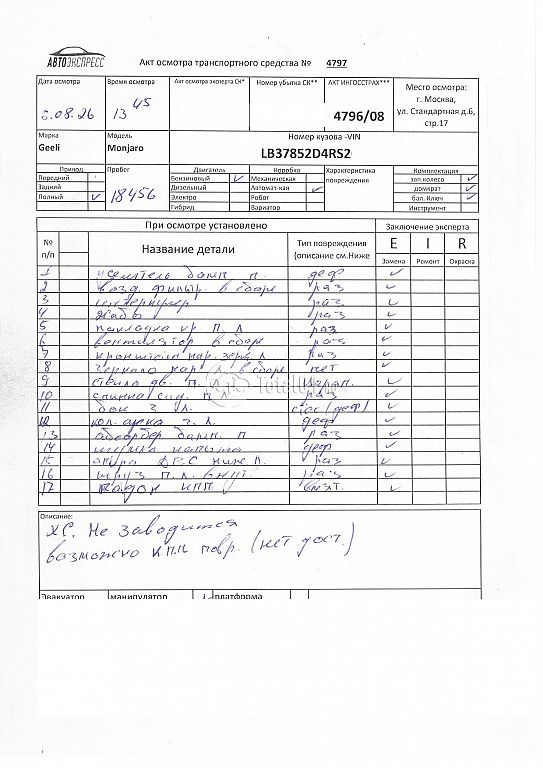 АВТОЭКСПРЕСС
Акт осмотра транспортного средства № 4797
Дата осмотра Время осмотра Акт осмотра эксперта СК* Номер убытка СК** АКТ ИНГОССТРАХ*** Место осмотра:
г. Москва,
ул. Стандартная д.6,
стр.17
.08.26 13 45 4796/08
Марка Модель Номер кузова -VIN
Geeli Monjaro LB37852D4RS2
Привод Пробег Двигатель Коробка Характеристика повреждения Комплектация
Передний Бензиновый ✓ Механическая зап.колесо ✓
Задний Дизельный Автомат-кая ✓ домкрат ✓
Полный ✓ 18456 Электро Робот бал. Ключ ✓
Гибрид Вариатор Инструмент
При осмотре установлено Заключение эксперта
№ п/п Название детали Тип повреждения (описание см.Ниже E I R
Замена Ремонт Окраска
1 усилитель бамп. п. деф ✓
2 возд. фильтр. в сборе раз ✓
3 интеркулер раз ✓
4 жабо раз ✓
5 накладка кр. П. Л раз ✓
6 вентилятор в сборе раз ✓
7 кроншт нар. зерк. Л раз ✓
8 Зеркало нар. Л. в сборе нет ✓
9 стекло дв. П. ✓
10 спинка сид. п. раз ✓
11 бок З Л. (деф) ✓
12 кол. арка З. Л. деф ✓
13 абсорбер бамп. П раз ✓
14 капота деф ✓
15 опора ДВС ниж. П. раз ✓
16 шруз п. Л. внут. раз ✓
17 КПП ✓
Описание:
ХС. Не заводится
возможно КПП повр. (нет дост.)
Эвакуатор манипулятор платформа